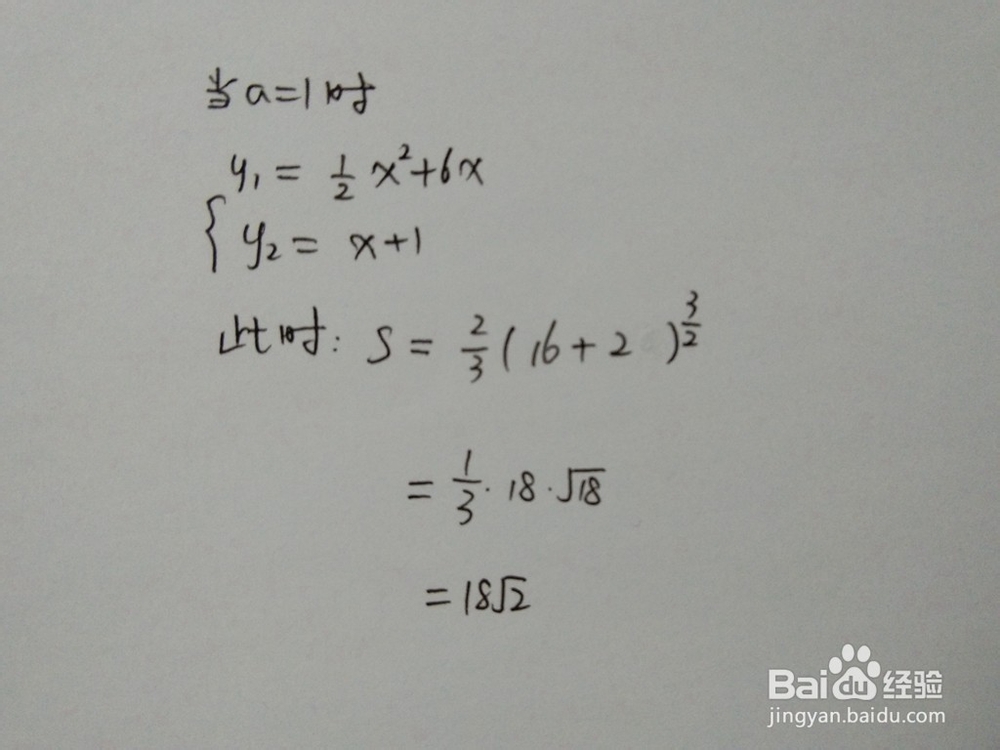 当a=1时
y₁ = 1/2 x²+6x
{ y₂ = x+1
此时: S = 2/3 (16+2 )^(3/2)
= 1/3 · 18 · √18
= 18√2
Baidu 经验
jingyan.baidu.com